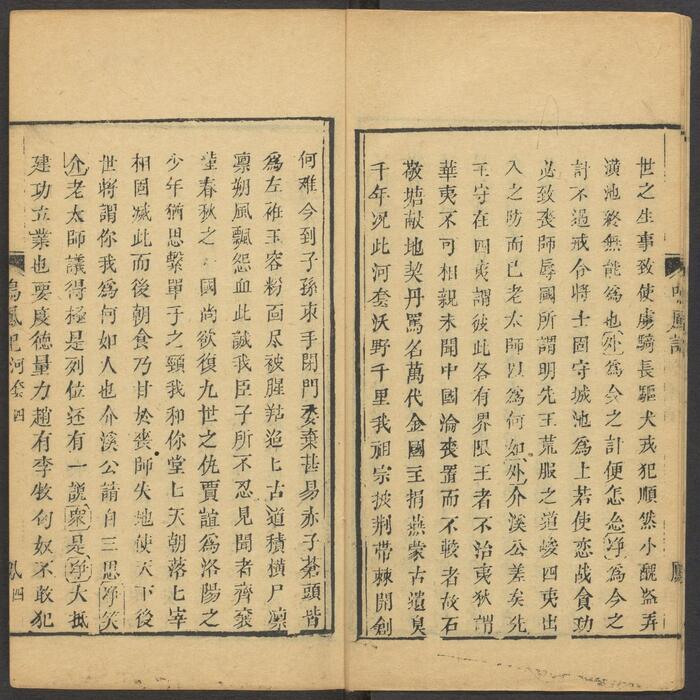 世之生事致使虜騎長驅犬戎犯順然小醜盜弄
潢池終無能為也外為今之計便怎麽淨為今之
計不過戒令將士固守城池為上若使戀战貪功
必致喪師辱國所謂明先王荒服之道峻四夷出
入之防而已老太師以為何如外介溪公差矣先
王守在四夷謂彼此各有界限王者不治夷狄謂
華夷不可相親未聞中國淪喪置而不較者故石
敬塘献地契丹罵名萬代金國王捐燕蒙古遺臭
千年况此河套沃野千里我祖宗披荆帶棘開創
何难今到子孫束手閉門委棄甚易赤子蒼頭皆
為左袵玉容粉面尽被腥羶追匕古道積橫尸凛
凛朔風飄怨血此誠我臣子所不忍見聞者齊襄
堂春秋之國尚欲復九世之仇賈誼為洛陽之
少年猶思繫單子之頸我和你堂匕天朝落匕宰
相固滅此而後朝食乃甘於喪師失地使天下後
世將謂你我為何如人也介溪公請自三思淨笑
介老太師議得極是列位还有一說衆是淨大抵
建功立業也要度德量力趙有李牧匈奴不敢犯
鳴鳳記 河套 四